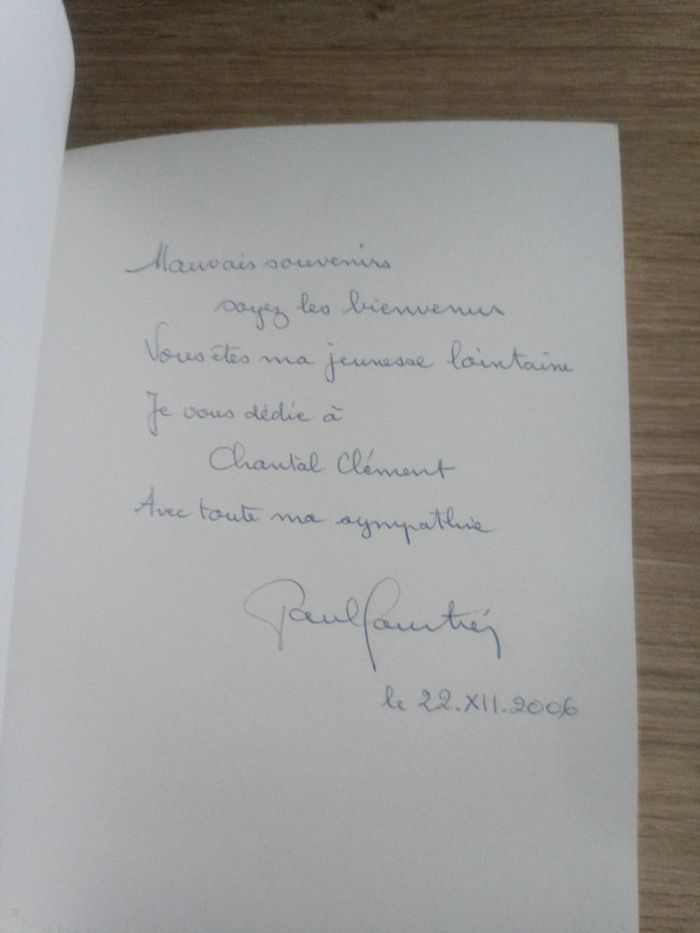 Mauvais souvenirs
soyez les bienvenus
Vous êtes ma jeunesse lointaine
Je vous dédie à
Chantal Clément
Avec toute ma sympathie
Paul
le 22.XII.2006